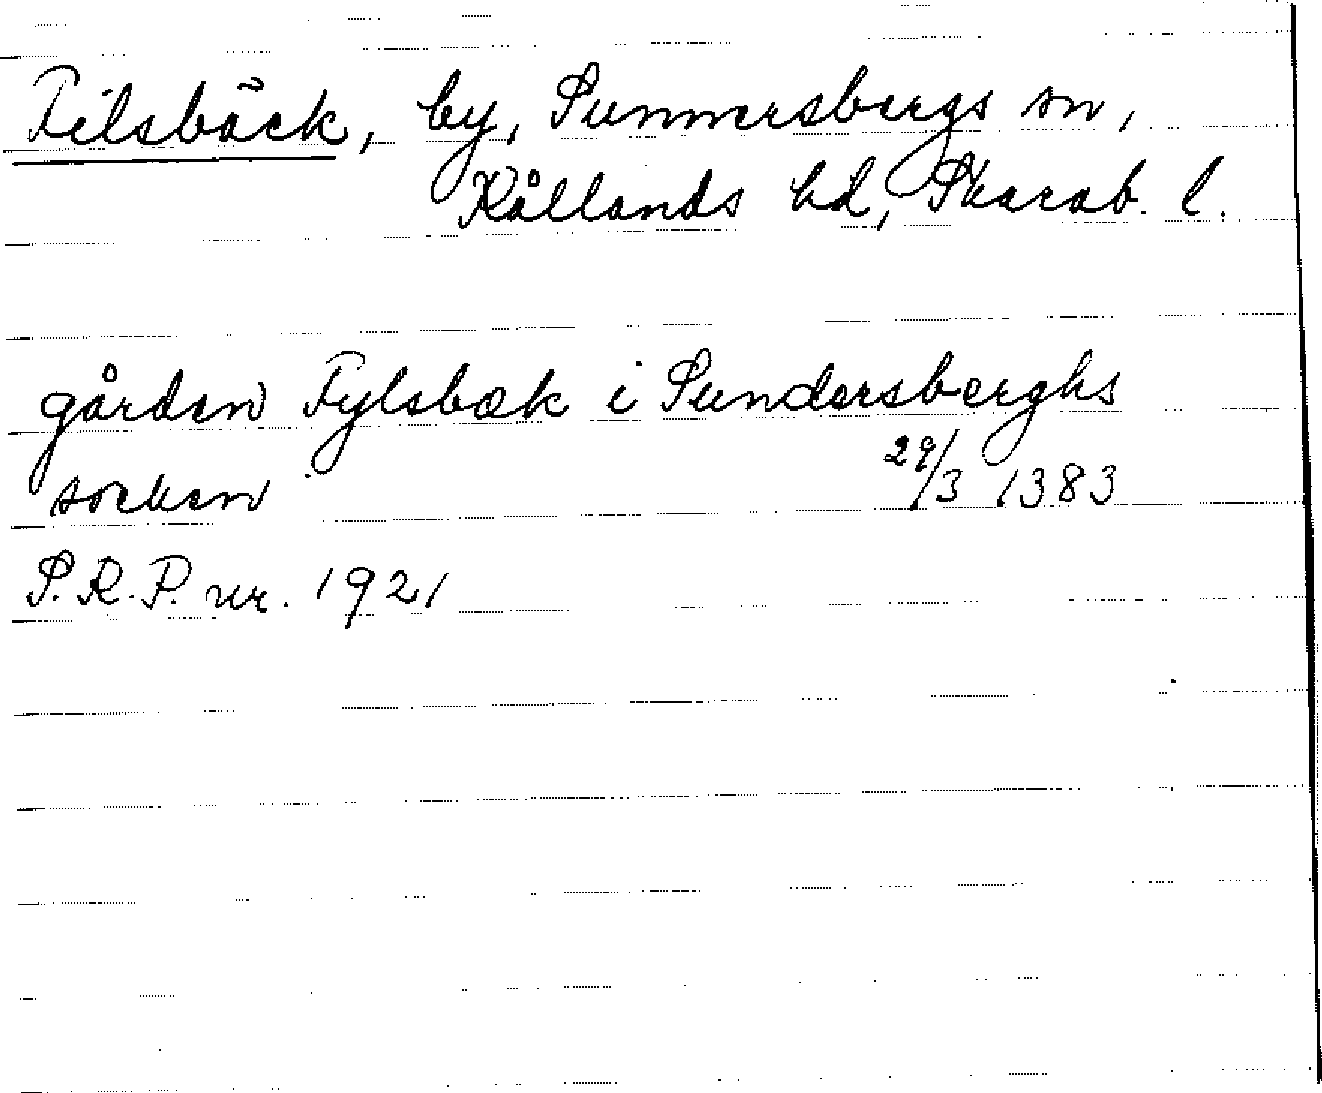 Filsbäck, by, Sunnersbergs sn,
Kållands hd, Skarab. l.
gården Fylsbæk i Sundersberghs
socken 29/3 1383
S.R.P. nr. 1921